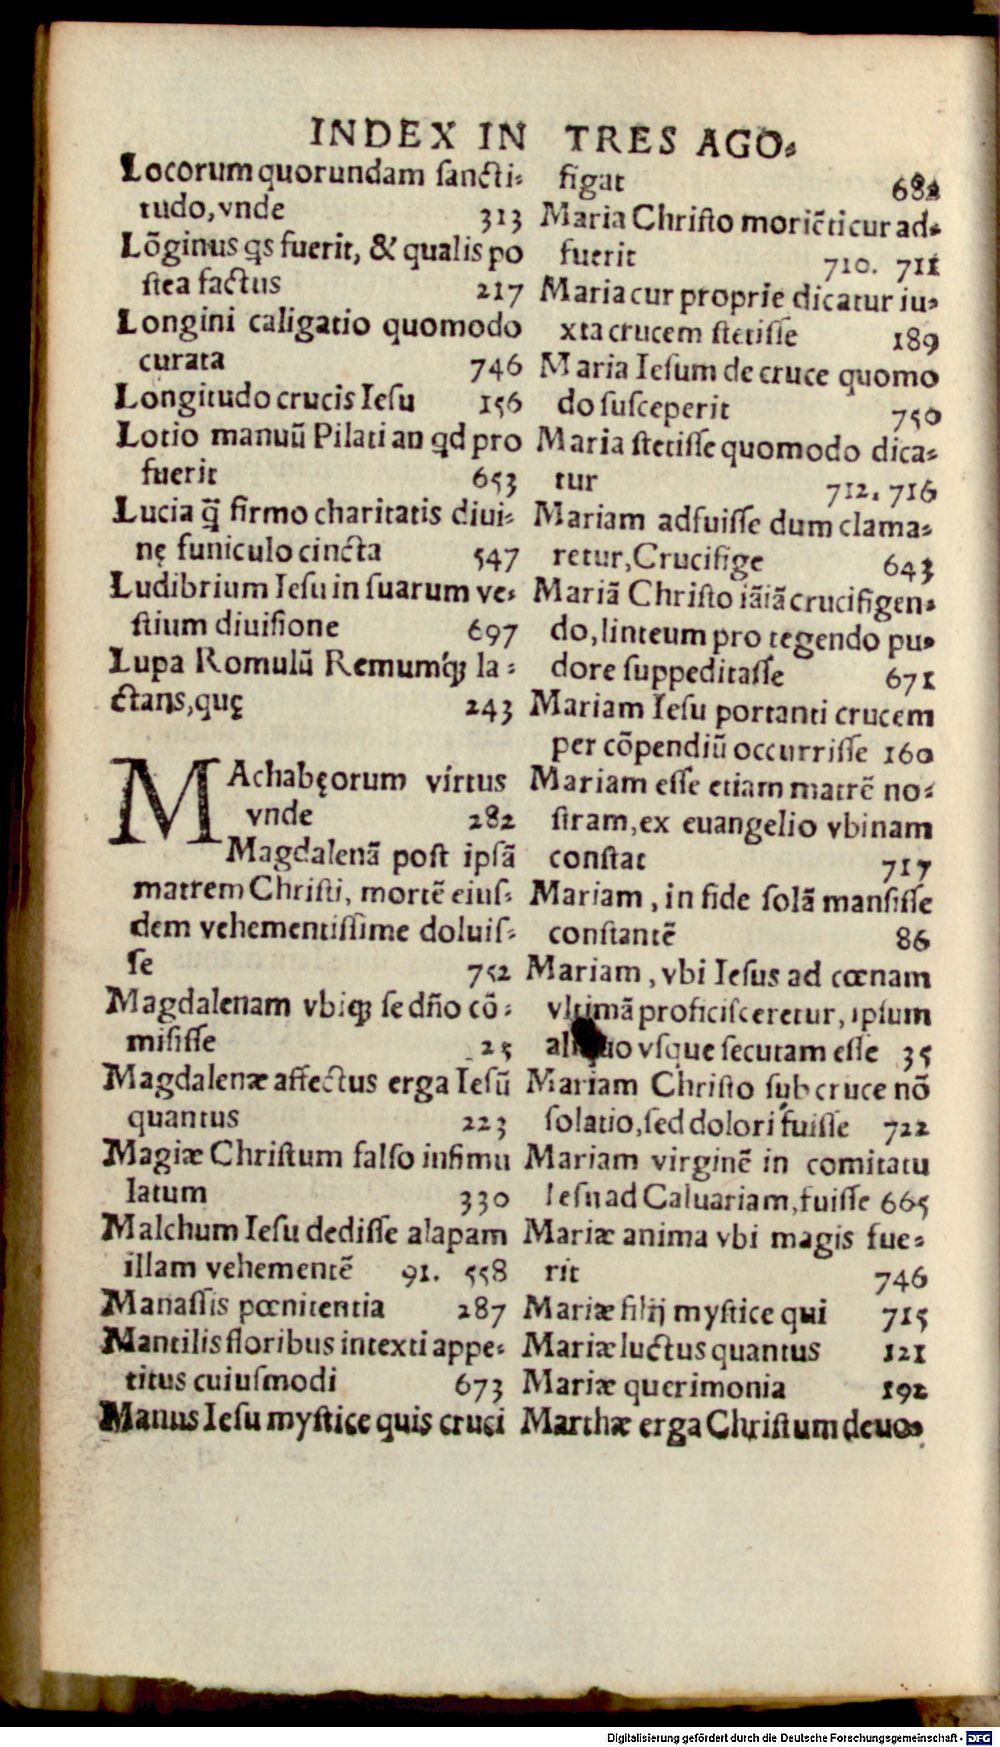 INDEX IN TRES AGO⸗
Locorum quorundam ſancti⸗
tudo, vnde 313
Lõginus q̃s fuerit, & qualis po
ſtea factus 217
Longini caligatio quomodo
curata 746
Longitudo crucis Ieſu 156
Lotio manuũ Pilati an qd pro
fuerit 653
Lucia q̃ firmo charitatis diui⸗
nę funiculo cincta 547
Ludibrium Ieſu in ſuarum ve⸗
ſtium diuiſione 697
Lupa Romulũ Remumq́ꝫ la⸗
ctans, quę 243
MAchabęorum virtus
vnde 282
Magdalenã poſt ipſã
matrem Chriſti, mortẽ eiuſ⸗
dem vehementiſſime doluiſ⸗
ſe 752
Magdalenam vbiqꝫ ſe dño cõ⸗
miſiſſe 25
Magdalenæ affectus erga Ieſũ
quantus 223
Magiæ Chriſtum falſo inſimu
latum 330
Malchum Ieſu dediſſe alapam
illam vehementẽ 91. 558
Manaſſis pœnitentia 287
Mantilis floribus intexti appe⸗
titus cuiuſmodi 673
Manus Ieſu myſtice quis cruci
figat 682
Maria Chriſto moriẽti cur ad⸗
fuerit 710. 711
Maria cur proprie dicatur iu⸗
xta crucem ſtetiſſe 189
Maria Ieſum de cruce quomo
do ſuſceperit 750
Maria ſtetiſſe quomodo dica⸗
tur 712. 716
Mariam adfuiſſe dum clama⸗
retur, Crucifige 643
Mariã Chriſto iãiã crucifigen⸗
do, linteum pro tegendo pu⸗
dore ſuppeditaſſe 671
Mariam Ieſu portanti crucem
per cõpendiũ occurriſſe 160
Mariam eſſe etiam matrẽ no⸗
ſtram, ex euangelio vbinam
conſtat 717
Mariam, in fide ſolã manſiſſe
conſtantẽ 86
Mariam, vbi Ieſus ad cœnam
vltimã proficiſceretur, ipſum
vſque ſecutam eſſe 35
Mariam Chriſto ſub cruce nõ
ſolatio, ſed dolori fuiſſe 722
Mariam virginẽ in comitatu
Ieſu ad Caluariam, fuiſſe 665
Mariæ anima vbi magis fue⸗
rit 746
Mariæ filij myſtice qui 715
Mariæ luctus quantus 121
Mariæ querimonia 192
Marthæ erga Chriſtum deuo⸗
Digitalisierung gefördert durch die Deutsche Forschungsgemeinschaft - DFG